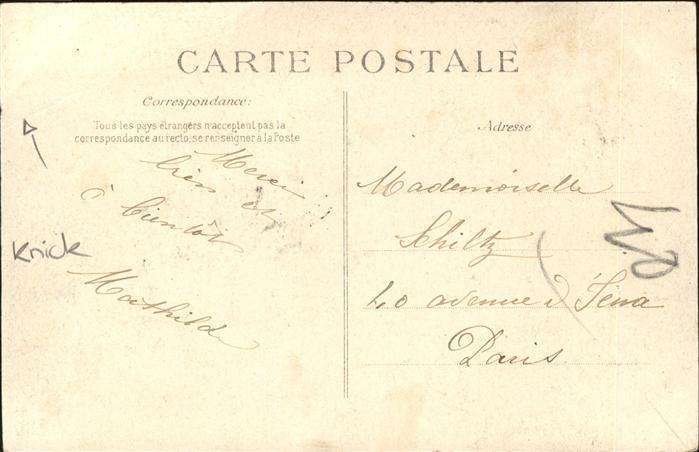 CARTE POSTALE
Correspondance:
Tous les pays étrangers n'acceptent pas la
correspondance au recto, se renseigner à la Poste
Merci
bien et
à bientôt
Mathilde
Knick
Adresse
Mademoiselle
Schiltz
40 avenue d'Iéna
Paris